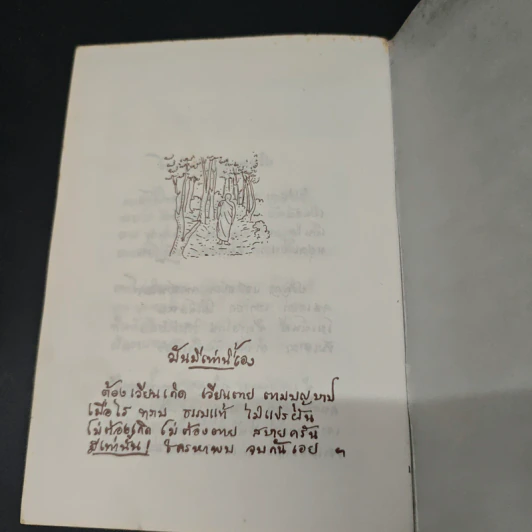 มันมีเท่านี้เอง
ต้องเวียนเกิด เวียนตาย ตามบุญบาป
เมื่อไร ทราบ ธรรมแท้ ไม่แปรผัน
ไม่ต้องเกิด ไม่ต้องตาย สบายครัน
มีเท่านั้น! ใครหาพบ จบกันเอย ฯ